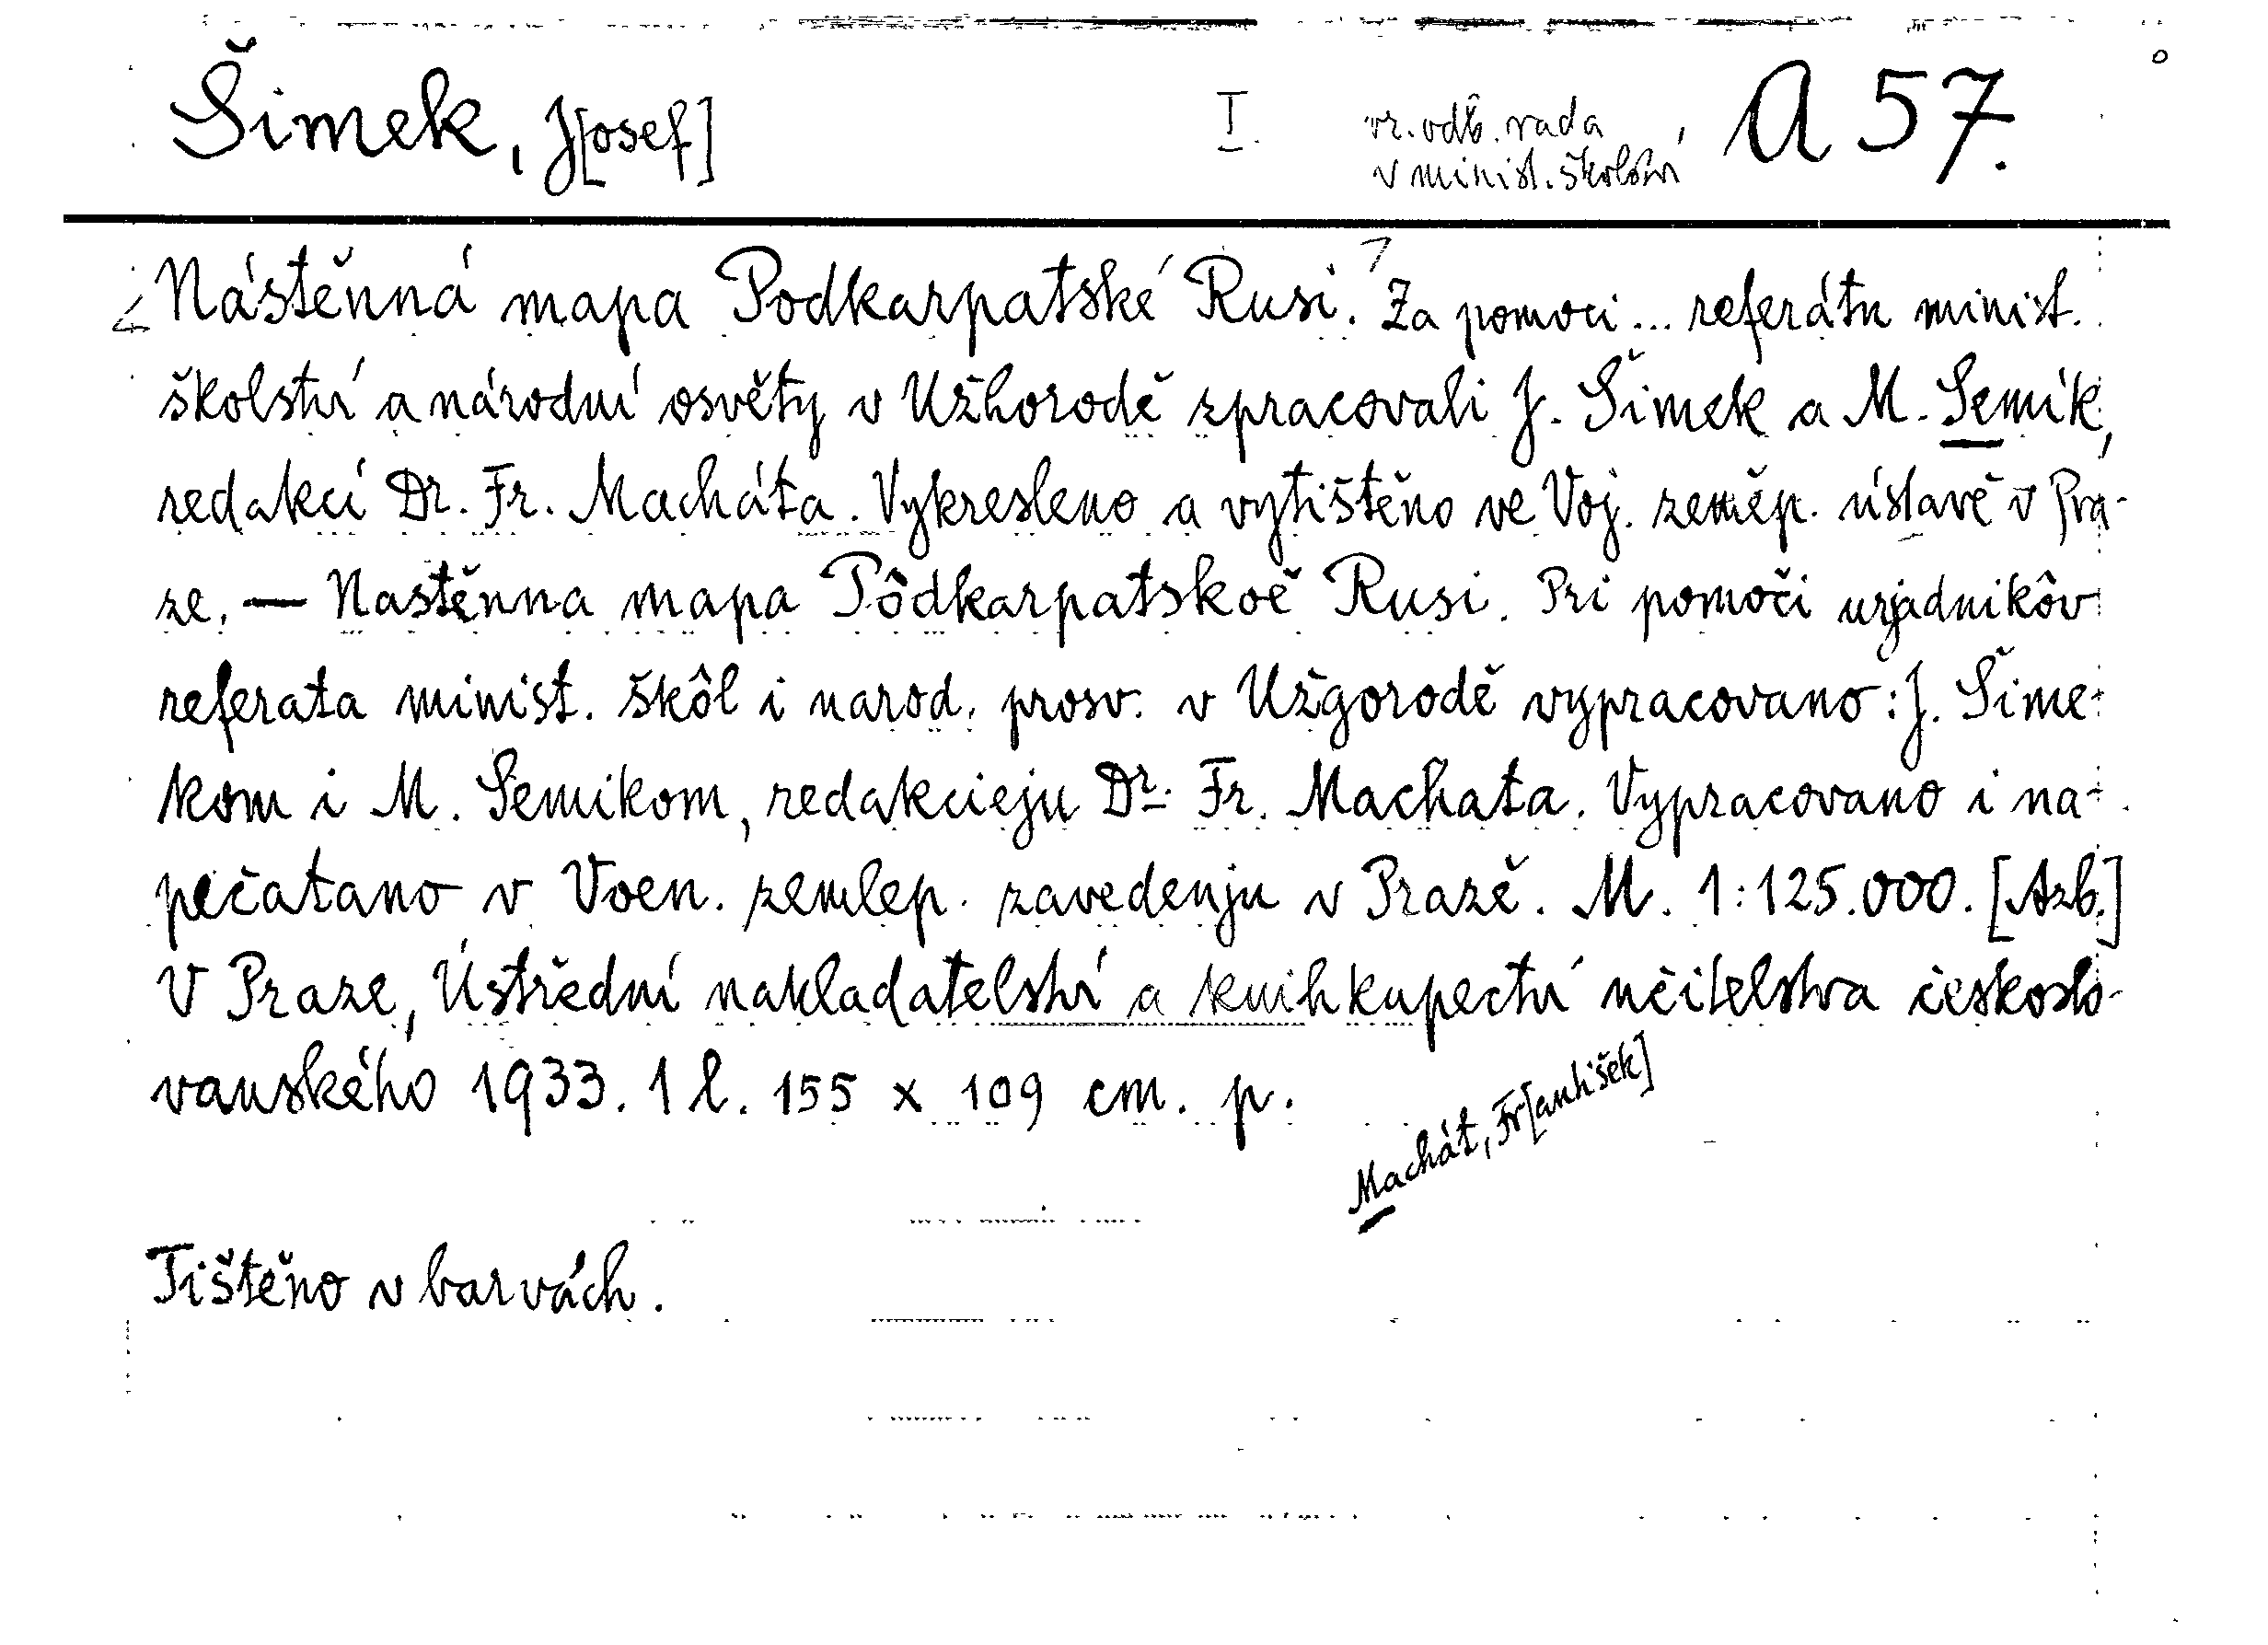 Šimek, J[osef]
I.
vr. odb. rada
v minist. školství
A 57.
Nástěnná mapa Podkarpatské Rusi. Za pomoci... referátu minist.
školství a národní osvěty v Užhorodě zpracovali J. Šimek a M. Semík,
redakcí Dr. Fr. Macháta. Vykresleno a vytištěno ve Voj. zeměp. ústavě v Pra-
ze. — Nastěnna mapa Pôdkarpatskoě Rusi. Pri pomoči urjadnikôv
referata minist. škôl i narod. prosv. v Užgorodě vypracovano: J. Šime-
kom i M. Semikom, redakcieju Dr. Fr. Machata. Vypracovano i na-
pečatano v Voen. zemlep. zavedenju v Prazě. M. 1:125.000. [Azb.]
V Praze, Ústřední nakladatelství a knihkupectví učitelstva českoslo-
vanského 1933. 1 l. 155 x 109 cm. p.
Machát, Fr[antišek]
Tištěno v barvách.